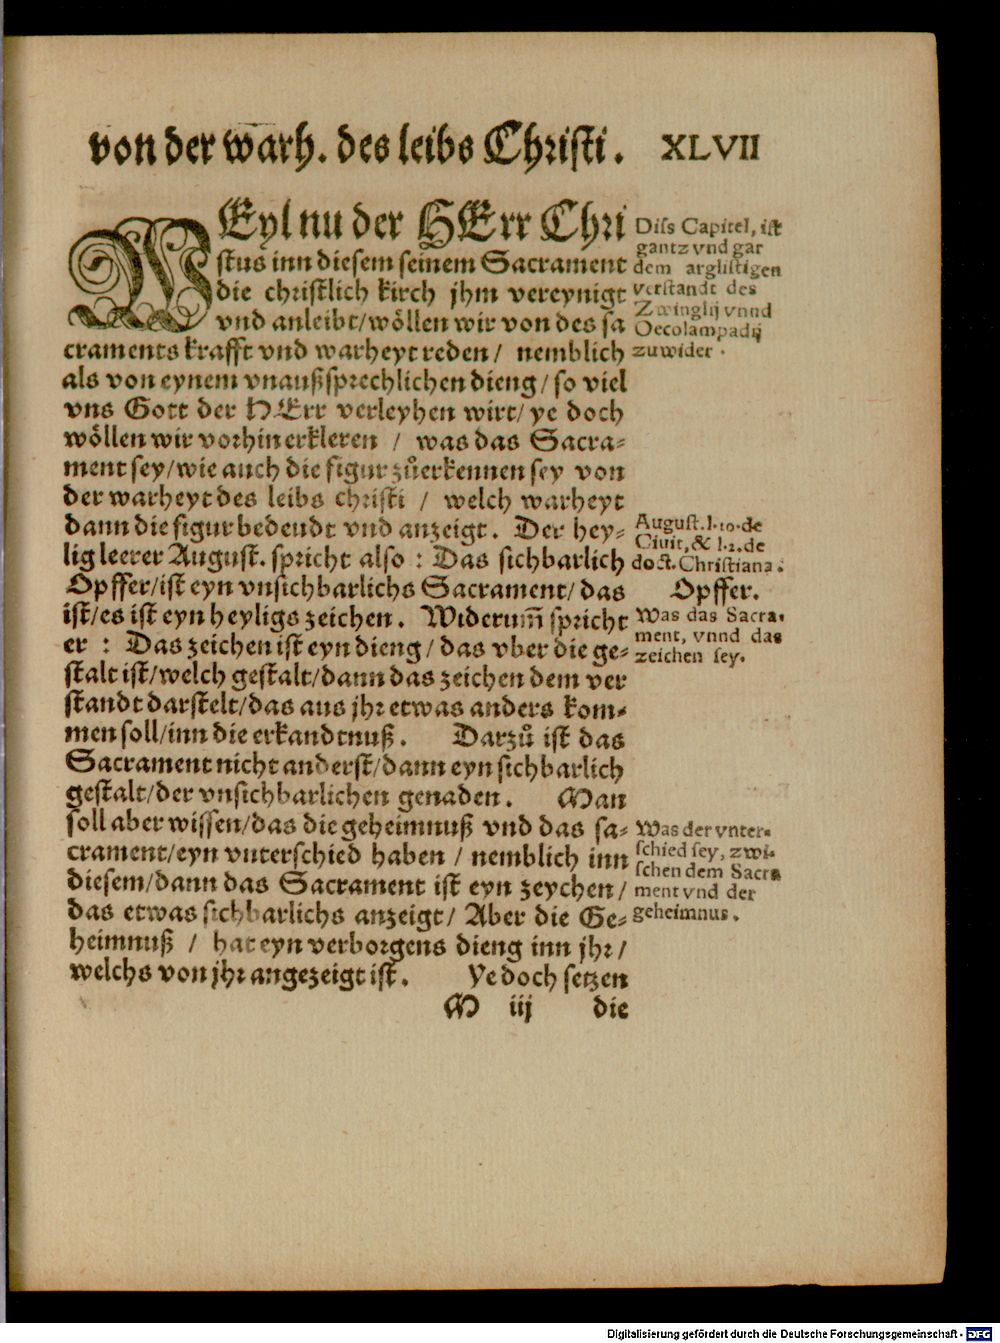 von der warh. des leibs Christi. XLVII
WEyl nu der HErr Chri
stus inn diesem seinem Sacrament
die christlich kirch jhm vereynigt
vnd anleibt/wöllen wir von des sa
craments krafft vnd warheyt reden/ nemblich
als von eynem vnaußsprechlichen dieng/so viel
vns Gott der HErr verleyhen wirt/ye doch
wöllen wir vorhin erkleren / was das Sacra-
ment sey/wie auch die figur zůerkennen sey von
der warheyt des leibs christi / welch warheyt
dann die figur bedeudt vnd anzeigt. Der hey-
lig leerer August. spricht also : Das sichbarlich
Opffer/ist eyn vnsichbarlichs Sacrament/das
ist/es ist eyn heyligs zeichen. Widerum̃ spricht
er : Das zeichen ist eyn dieng/das vber die ge-
stalt ist/welch gestalt/dann das zeichen dem ver
standt darstelt/das aus jhr etwas anders kom-
men soll/inn die erkandtnuß. Darzů ist das
Sacrament nicht anderst/dann eyn sichbarlich
gestalt/der vnsichbarlichen genaden. Man
soll aber wissen/das die geheimnuß vnd das sa-
crament/eyn vnterschied haben / nemblich inn
diesem/dann das Sacrament ist eyn zeychen/
das etwas sichbarlichs anzeigt/ Aber die Ge-
heimnuß / hat eyn verborgens dieng inn jhr/
welchs von jhr angezeigt ist. Ye doch setzen
M iij die
Diss Capitel, ist
gantz vnd gar
dem arglistigen
verstandt des
Zwinglij vnnd
Oecolampadij
zuwider.
August. l. 10. de
Ciuit, & l. 2. de
doct. Christiana.
Opffer.
Was das Sacra-
ment, vnnd das
zeichen sey.
Was der vnter-
schied sey, zwi-
schen dem Sacra
ment vnd der
geheimnus.
Digitalisierung gefördert durch die Deutsche Forschungsgemeinschaft - DFG